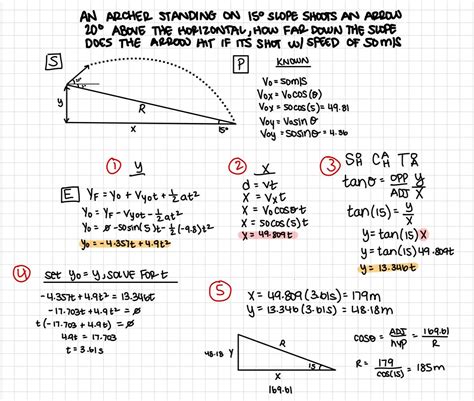 AN ARCHER STANDING ON 15° SLOPE SHOOTS AN ARROW
20° ABOVE THE HORIZONTAL, HOW FAR DOWN THE SLOPE
DOES THE ARROW HIT IF ITS SHOT W/ SPEED OF 50M/S
S
y
R
x
15°
P KNOWN
Vo = 50m/s
Vox = Vo cos(θ)
Vox = 50cos(5) = 49.81
Voy = Vosin θ
Voy = 50sinθ = 4.36
① y
E YF = Yo + Vyot + ½at²
Yo = YF - Vyot - ½at²
Yo = 0 - 50sin(5)t - ½(-9.8)t²
Yo = -4.357t + 4.9t²
② X
d = vt
X = Vxt
X = Vocosθt
X = 50cos(5)t
X = 49.809t
③ SOH CAH TOA
tanθ = OPP/ADJ y/x
tan(15) = y/x
y = tan(15)x
y = tan(15)49.809t
y = 13.346t
④ set Yo = y, SOLVE FOR t
-4.357t + 4.9t² = 13.346t
-17.703t + 4.9t² = 0
t(-17.703 + 4.9t) = 0
4.9t = 17.703
t = 3.61s
⑤ X = 49.809(3.61s) = 179m
y = 13.346(3.61s) = 48.18m
48.18 y
R
15°
X
169.61
cosθ = ADJ/hyp = 169.61/R
R = 179/cos(15) = 185m